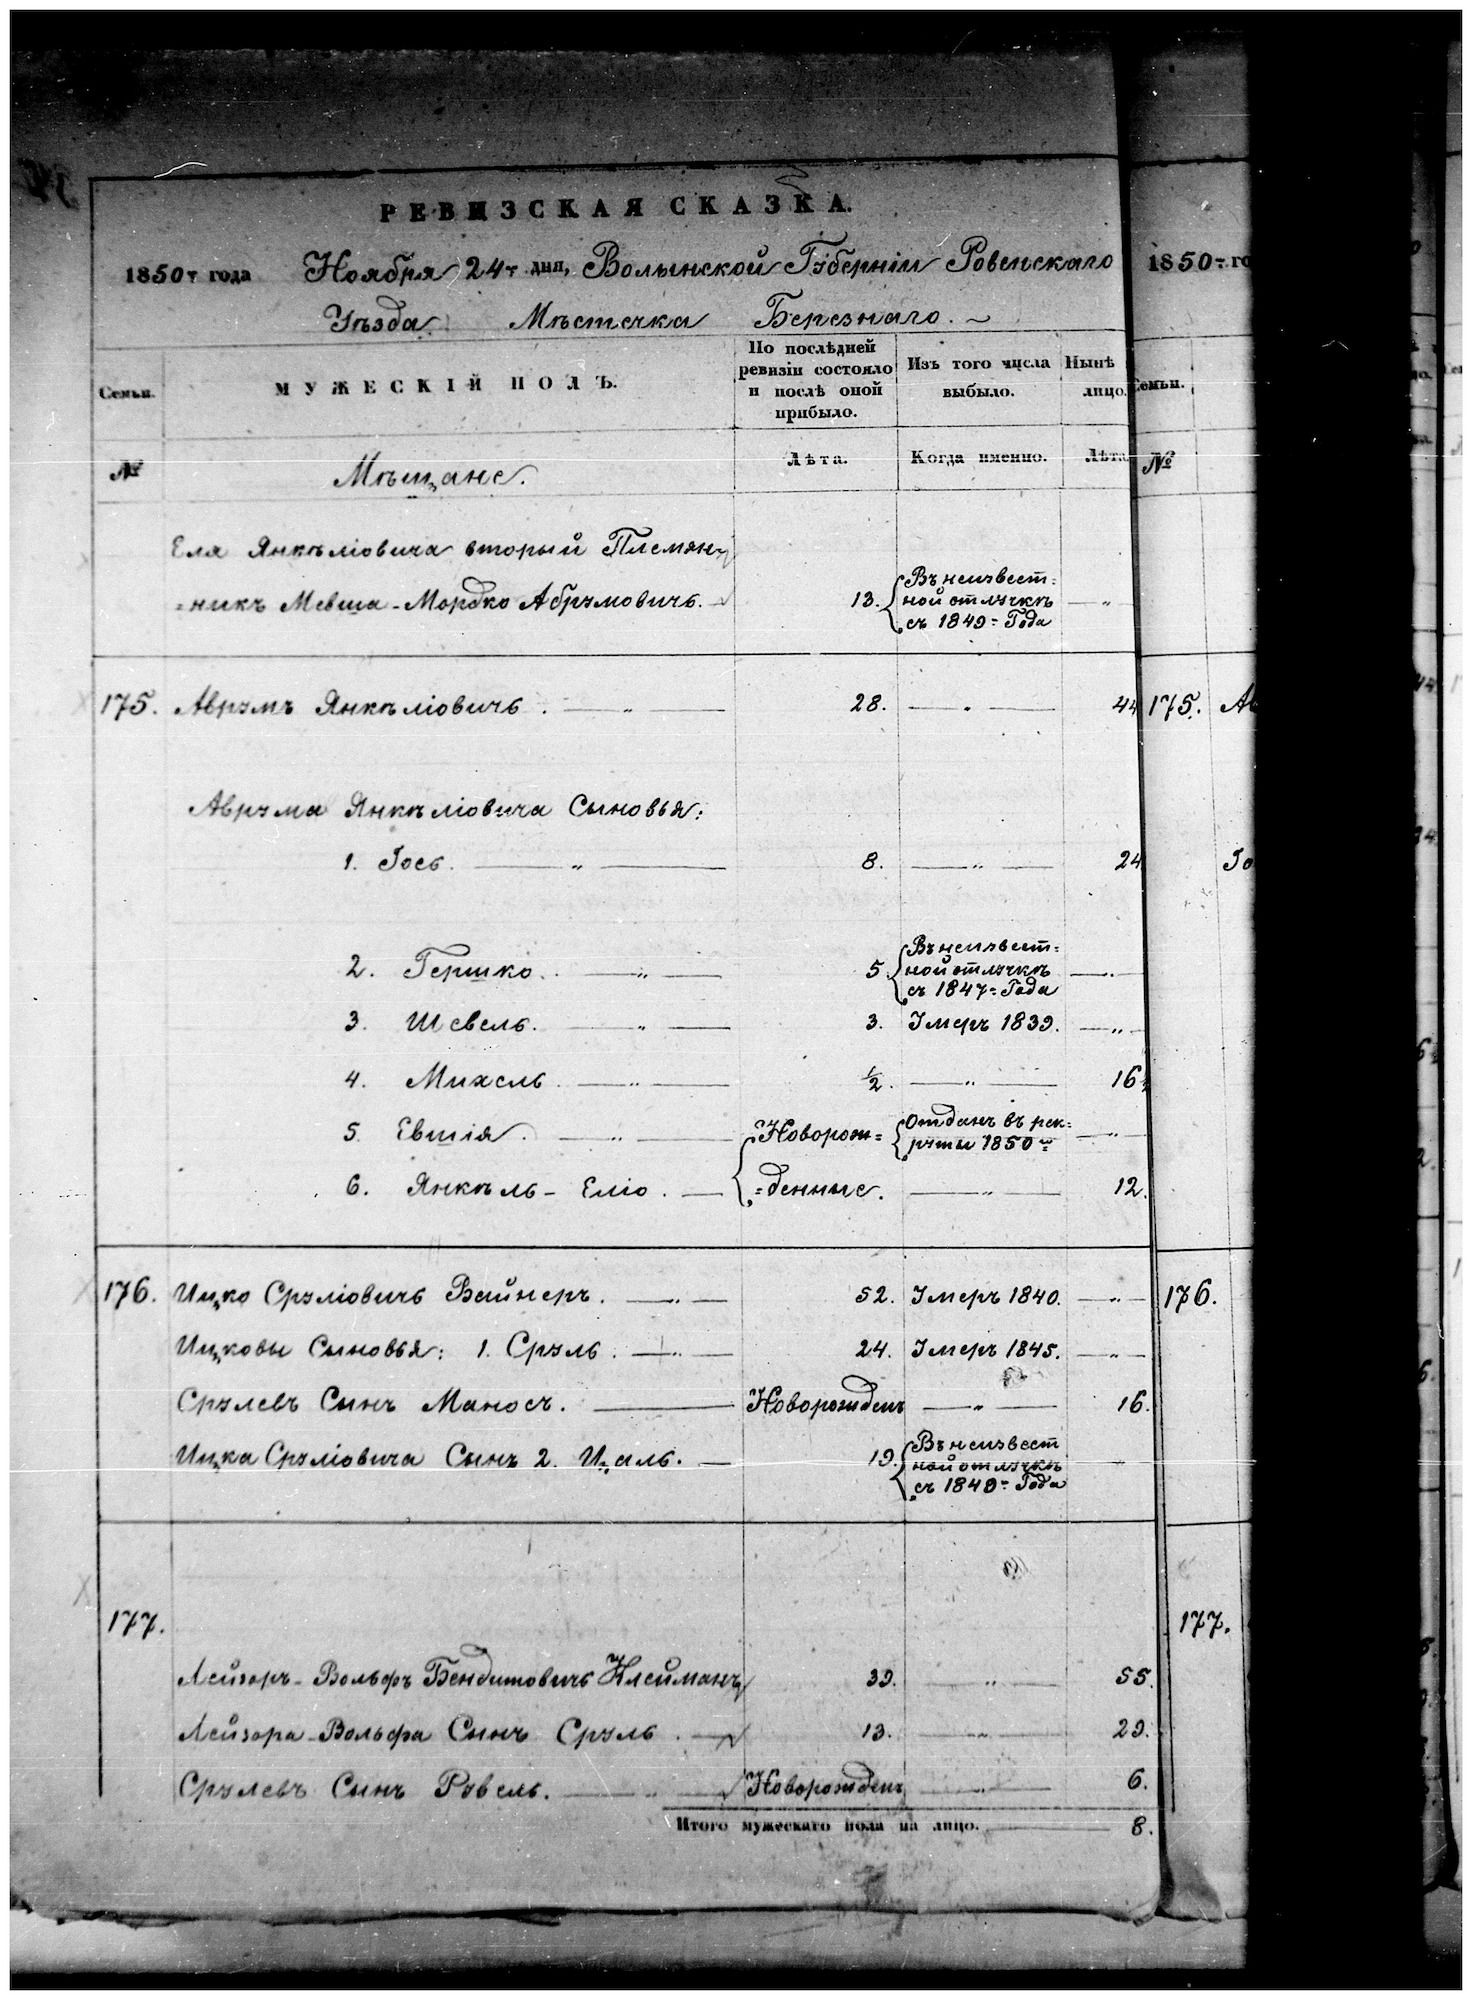 РЕВИЗСКАЯ СКАЗКА.
1850г года Ноября 24г дня, Волынской Губерніи Ровенскаго
Уѣзда Мѣстечка Березнаго.
Семьи. МУЖЕСКІЙ ПОЛЪ. По послѣдней ревизіи состояло и послѣ оной прибыло. Изъ того числа выбыло. Нынѣ лицо.
№ Мѣщане. Лѣта. Когда именно. Лѣта
Еля Янкѣліовича вторый Племян=
=никъ Мевша-Мордко Абрумовичь. 13. Въ неизвест=
ной отлучкѣ
съ 1849= Года
175. Аврумъ Янкѣліовичь. 28. 44
Аврума Янкѣліовича Сыновья:
1. Іось. 8. 24
2. Гершко. 5. Въ неизвест=
ной отлучкѣ
съ 1847= Года
3. Шевель. 3. Умеръ 1839.
4. Михель. 1/2. 16
5. Евшія. Новорож= Отданъ въ рек=
руты 1850
6. Янкѣль-Еліо. =денные. 12.
176. Ицко Сруліовичь Вайнеръ. 52. Умеръ 1840.
Ицковы Сыновья: 1. Сруль. 24. Умеръ 1845.
Срулевъ Сынъ Маносъ. Новорожденъ 16.
Ицка Сруліовича Сынъ 2. Ицаль. 19. Въ неизвест
ной отлучкѣ
съ 1849= Года
177.
Лейзоръ-Вольфъ Бендитовичь Клейманъ 39. 55.
Лейзора-Вольфа Сынъ Сруль. 13. 29.
Срулевъ Сынъ Рувель. Новорожденъ 6.
Итого мужескаго пола на лицо. 8.
1850= го
Семьи.
№
175. Ав
Іо
176.
177.